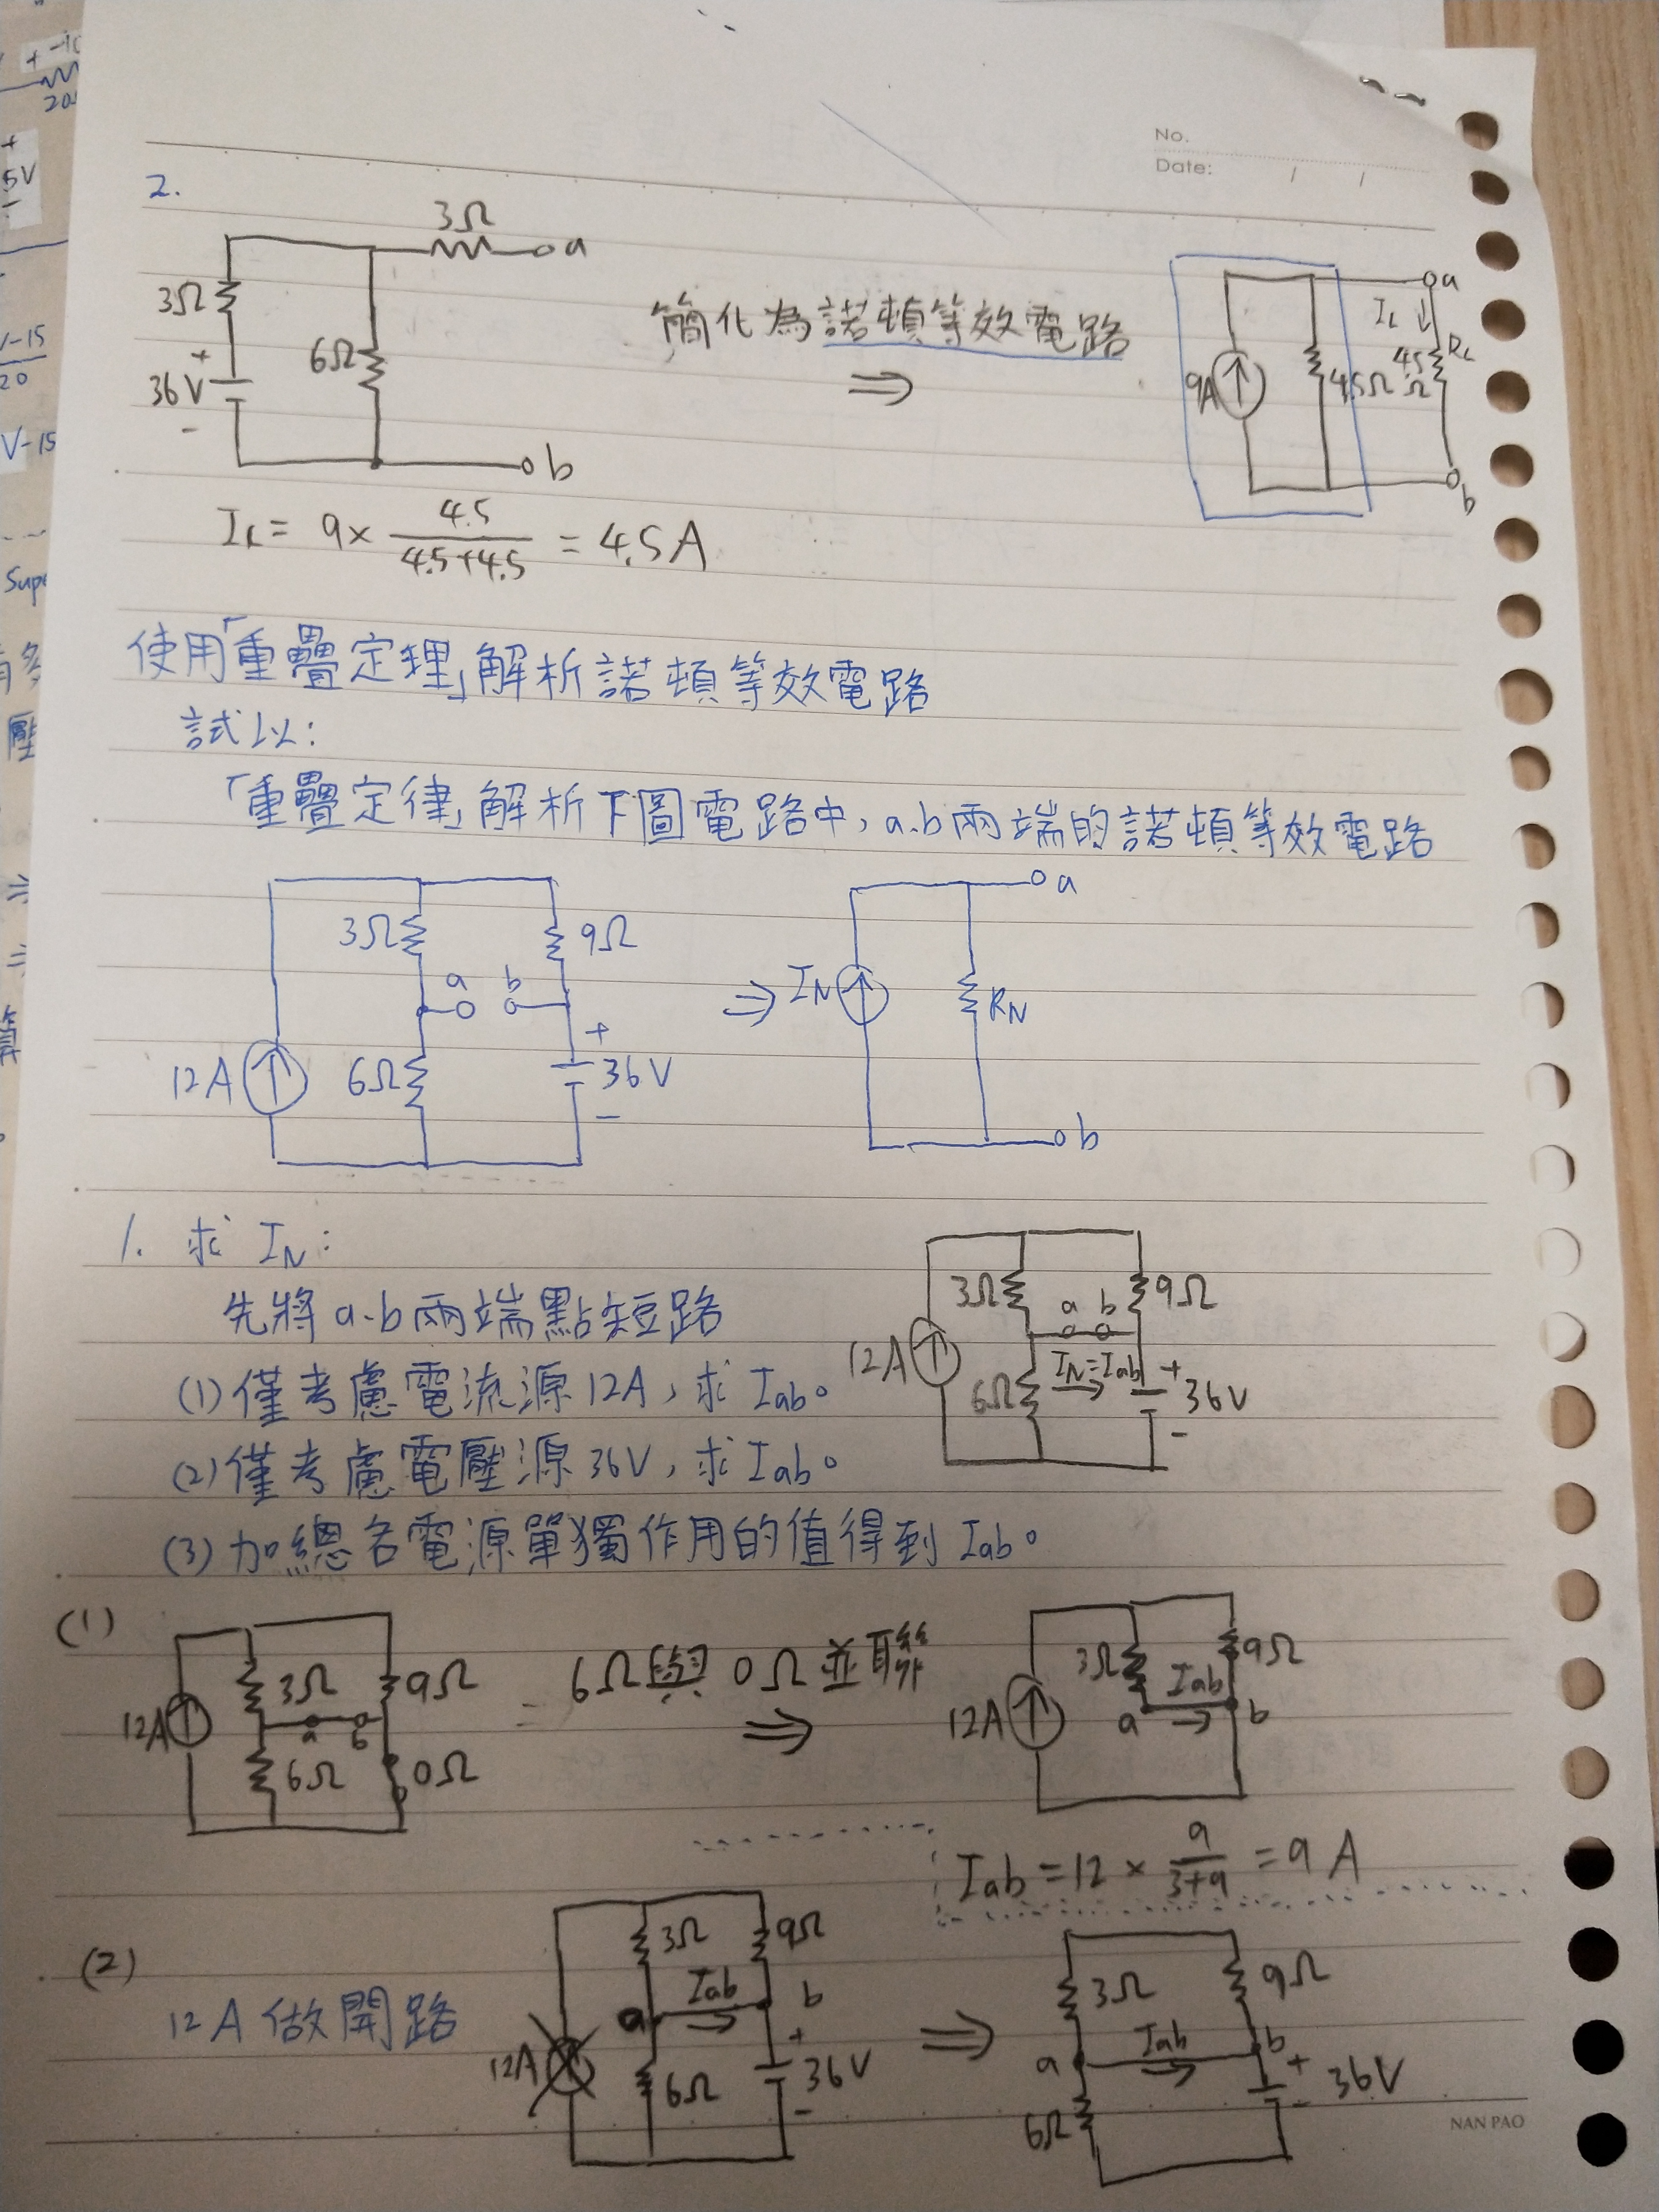 No.
Date: / /
2.
3Ω
a
3Ω
+
36V
-
6Ω
b
簡化為諾頓等效電路
⇒
9A
4.5Ω
IL ↓
4.5Ω
RL
a
b
IL = 9 × 4.5/(4.5+4.5) = 4.5A
使用「重疊定理」解析諾頓等效電路
試以:
「重疊定律」解析下圖電路中, a.b兩端的諾頓等效電路
3Ω
9Ω
a b
12A
6Ω
+
36V
-
⇒
IN
RN
a
b
1. 求 IN:
先將 a.b 兩端點短路
(1) 僅考慮電流源 12A, 求 Iab。
(2) 僅考慮電壓源 36V, 求 Iab。
(3) 加總各電源單獨作用的值得到 Iab。
3Ω
9Ω
a b
12A
6Ω
IN=Iab
+
36V
-
(1)
3Ω
9Ω
12A
a b
6Ω
0Ω
6Ω與 0Ω 並聯
⇒
3Ω
9Ω
Iab
12A
a
b
Iab = 12 × 9/(3+9) = 9 A
(2)
12A 做開路
3Ω
9Ω
Iab
a
b
12A
6Ω
+
36V
-
⇒
3Ω
9Ω
Iab
a
b
+
36V
-
6Ω
NAN PAO
+ -10
20
+
5V
-
V-15
20
V-15
Supe
壓
⇒
⇒
算